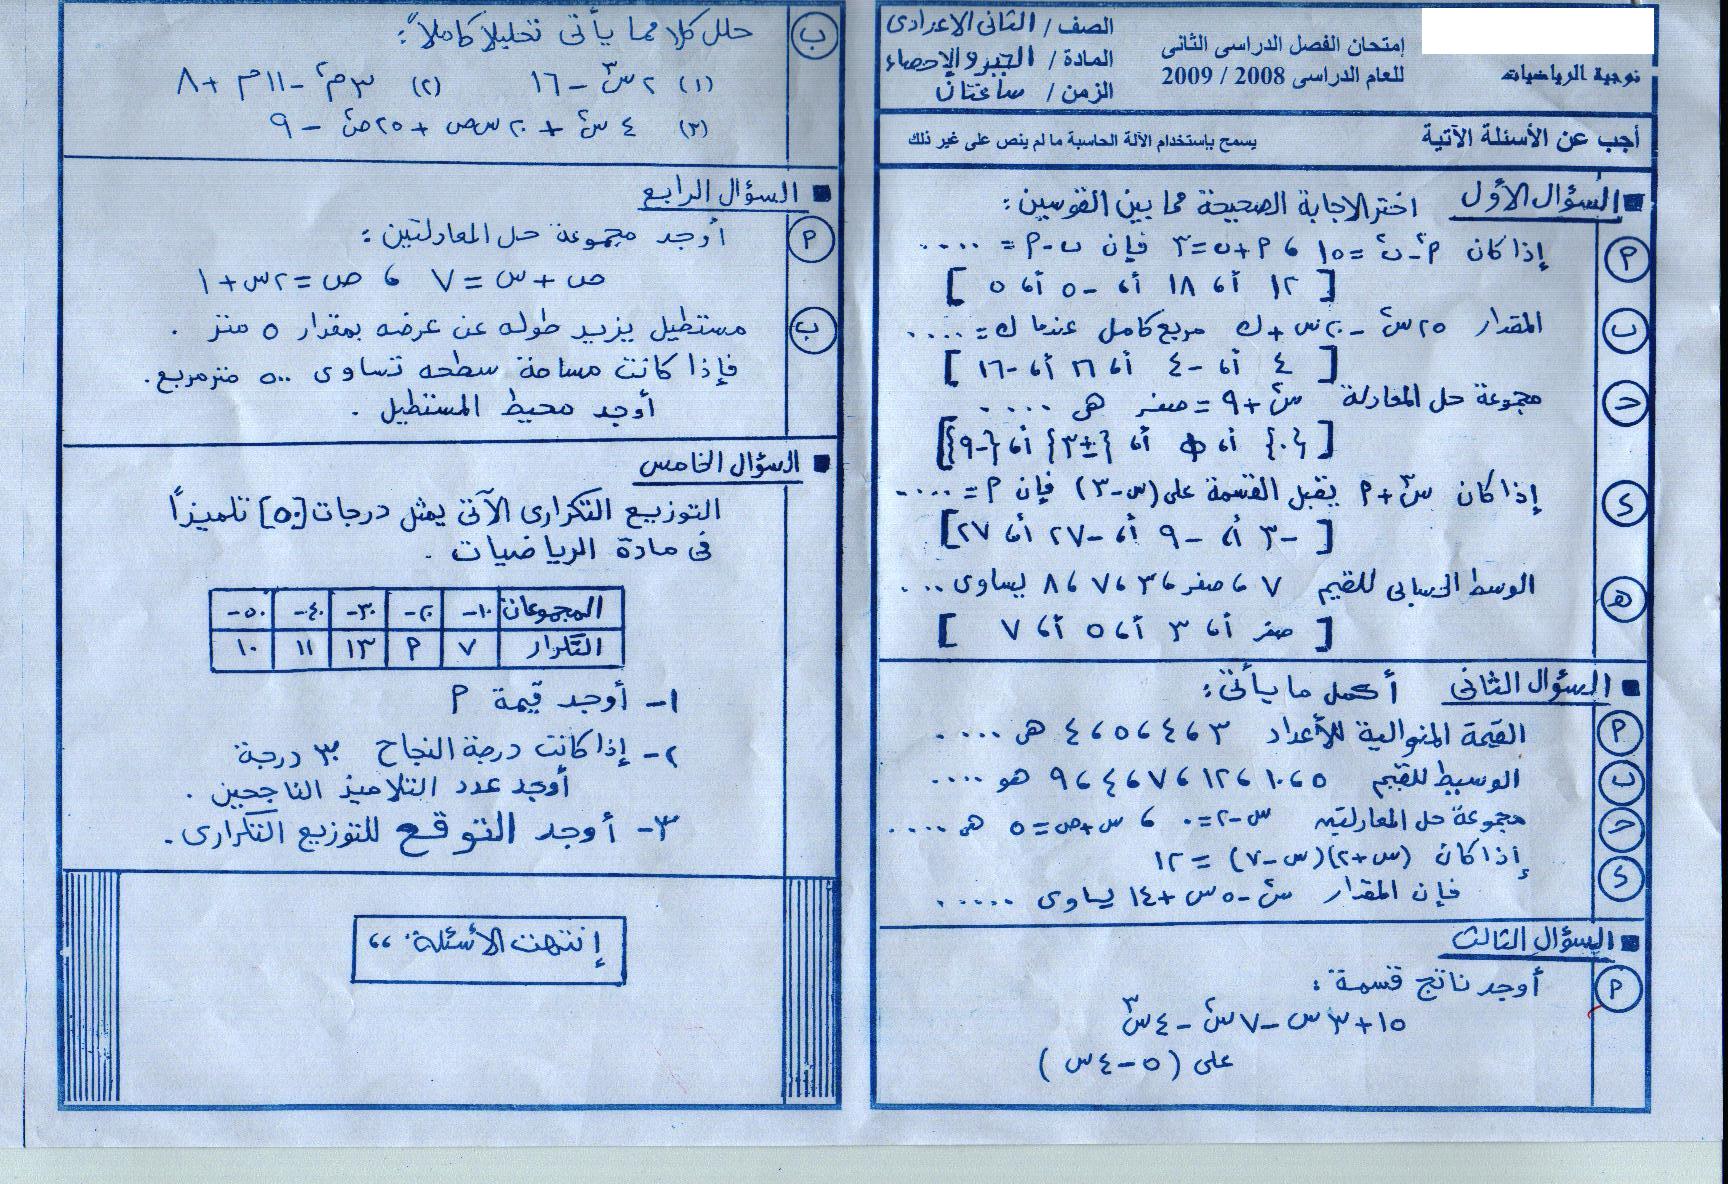 إمتحان الفصل الدراسى الثانى
للعام الدراسى 2008 / 2009
توجية الرياضيات
الصف / الثانى الاعدادى
المادة / الجبر والإحصاء
الزمن / ساعتان
أجب عن الأسئلة الآتية
يسمح بإستخدام الآلة الحاسبة ما لم ينص على غير ذلك
السؤال الأول اختر الاجابة الصحيحة مما بين القوسين :
أ إذا كان أ٢ - ب٢ = ١٥ ، أ + ب = ٣ فإن ب - أ = ....
[ ١٢ أ، ١٨ أ، -٥ أ، ٥ ]
ب المقدار ٢٥س٢ - ٢٠س + ك مربع كامل عندما ك = ....
[ ٤ أ، -٤ أ، ١٦ أ، -١٦ ]
ح مجموعة حل المعادلة س٢ + ٩ = صفر هى ....
[ {٠} أ، Φ أ، {±٣} أ، {-٩} ]
د إذا كان س٣ + أ يقبل القسمة على (س - ٣) فإن أ = ....
[ -٣ أ، -٩ أ، -٢٧ أ، ٢٧ ]
ه الوسط الحسابى للقيم ٧ ، صفر ، ٣ ، ٧ ، ٨ يساوى ...
[ صفر أ، ٣ أ، ٥ أ، ٧ ]
السؤال الثانى أكمل ما يأتى :
أ القيمة المنوالية للأعداد ٣ ، ٤ ، ٥ ، ٤ هى ....
ب الوسيط للقيم ٥ ، ١٠ ، ١٢ ، ٧ ، ٤ ، ٩ هو ....
ح مجموعة حل المعادلتين س - ٢ = ٠ ، س + ص = ٥ هى ....
د إذا كان (س + ٢)(س - ٧) = ١٢
فإن المقدار س٢ - ٥س + ١٤ يساوى .....
السؤال الثالث
أ أوجد ناتج قسمة :
١٥ + ٣س - ٧س٢ - ٤س٣
على ( ٥ - ٤س )
ب حلل كلا مما يأتى تحليلا كاملاً :
(١) ٢س٣ - ١٦ (٢) ٣م٢ - ١١م + ٨
(٣) ٤س٢ + ٢٠س ص + ٢٥ص٢ - ٩
السؤال الرابع
أ أوجد مجموعة حل المعادلتين :
ص + س = ٧ ، ص = ٢س + ١
ب مستطيل يزيد طوله عن عرضه بمقدار ٥ متر .
فإذا كانت مساحة سطحه تساوى ٥٠٠ متر مربع .
أوجد محيط المستطيل .
السؤال الخامس
التوزيع التكرارى الآتى يمثل درجات [٥٠] تلميذاً
فى مادة الرياضيات .
المجموعات ١٠- ٢٠- ٣٠- ٤٠- ٥٠-
التكرار ٧ أ ١٣ ١١ ١٠
١- أوجد قيمة أ
٢- إذا كانت درجة النجاح ٣٠ درجة
أوجد عدد التلاميذ الناجحين .
٣- أوجد التوقع للتوزيع التكرارى .
إنتهت الأسئلة ،،